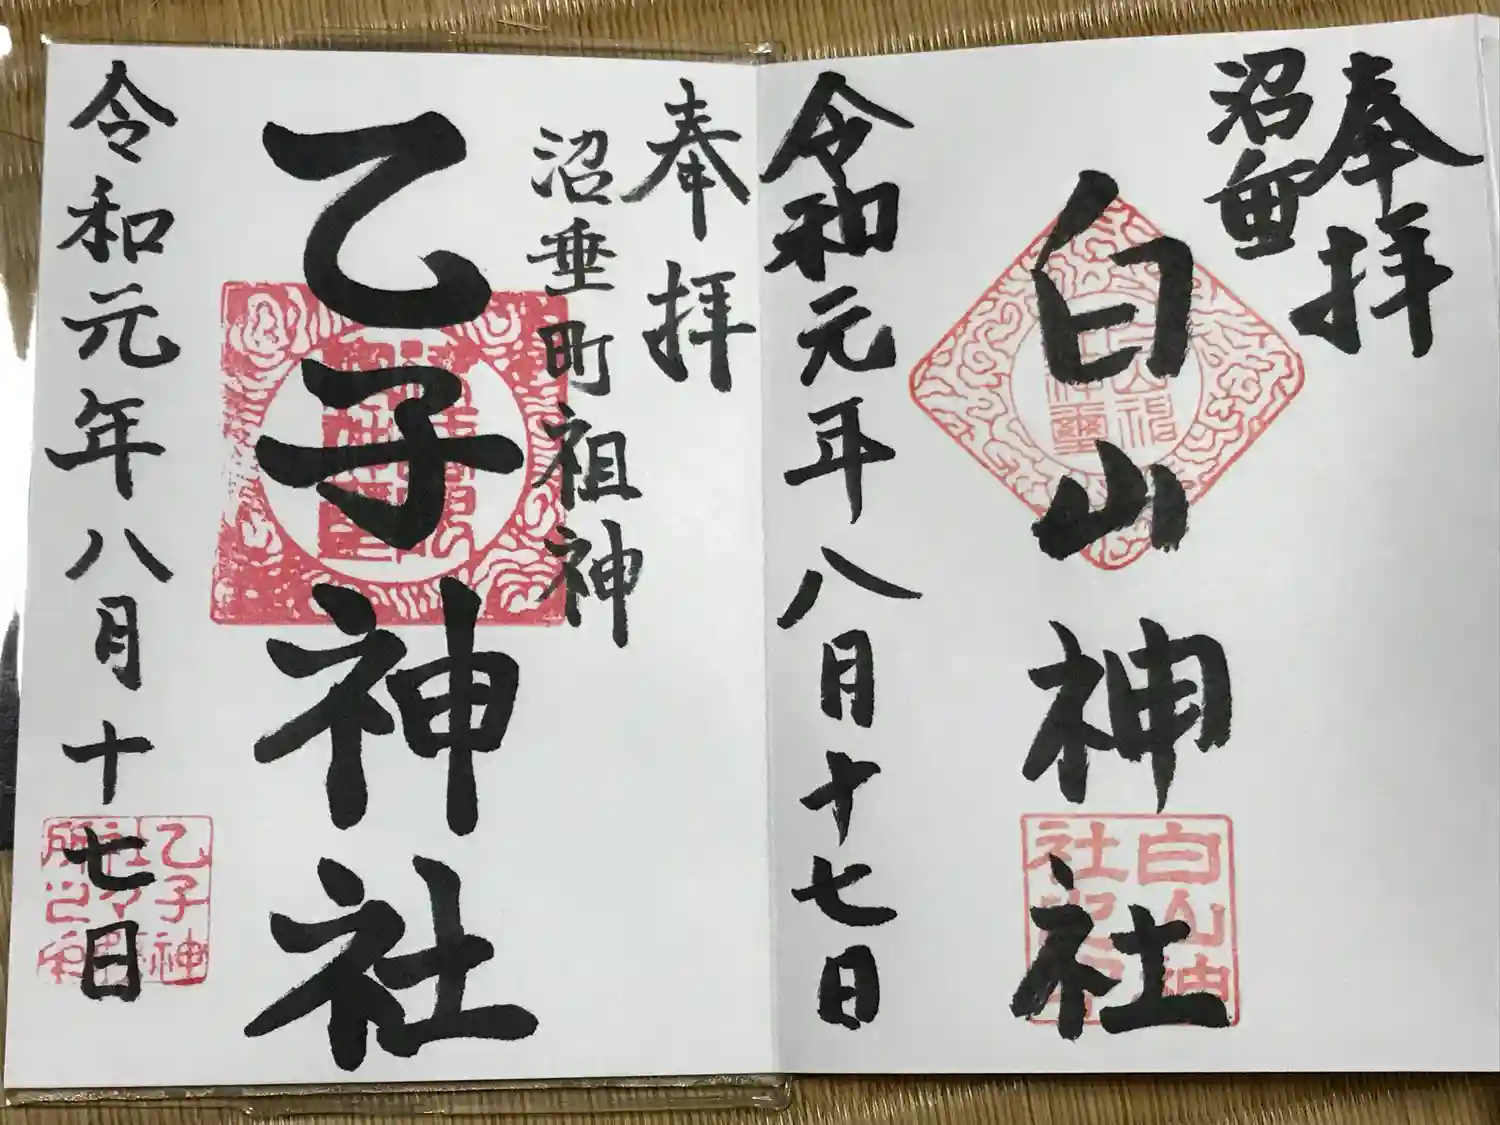 奉拝
沼垂
白山神社
白山神
社
令和元年八月十七日
奉拝
沼垂町祖神
乙子神社
令和元年八月十七日
乙子神